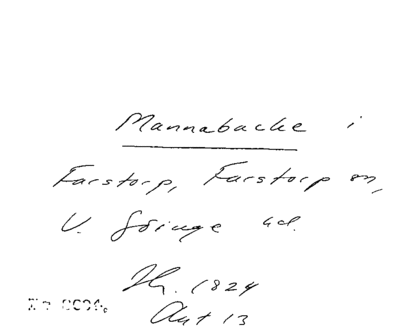 Mannabacke i
Farstorp, Farstorp sn,
V. Göinge hd.
Th. 1824
Akt 13